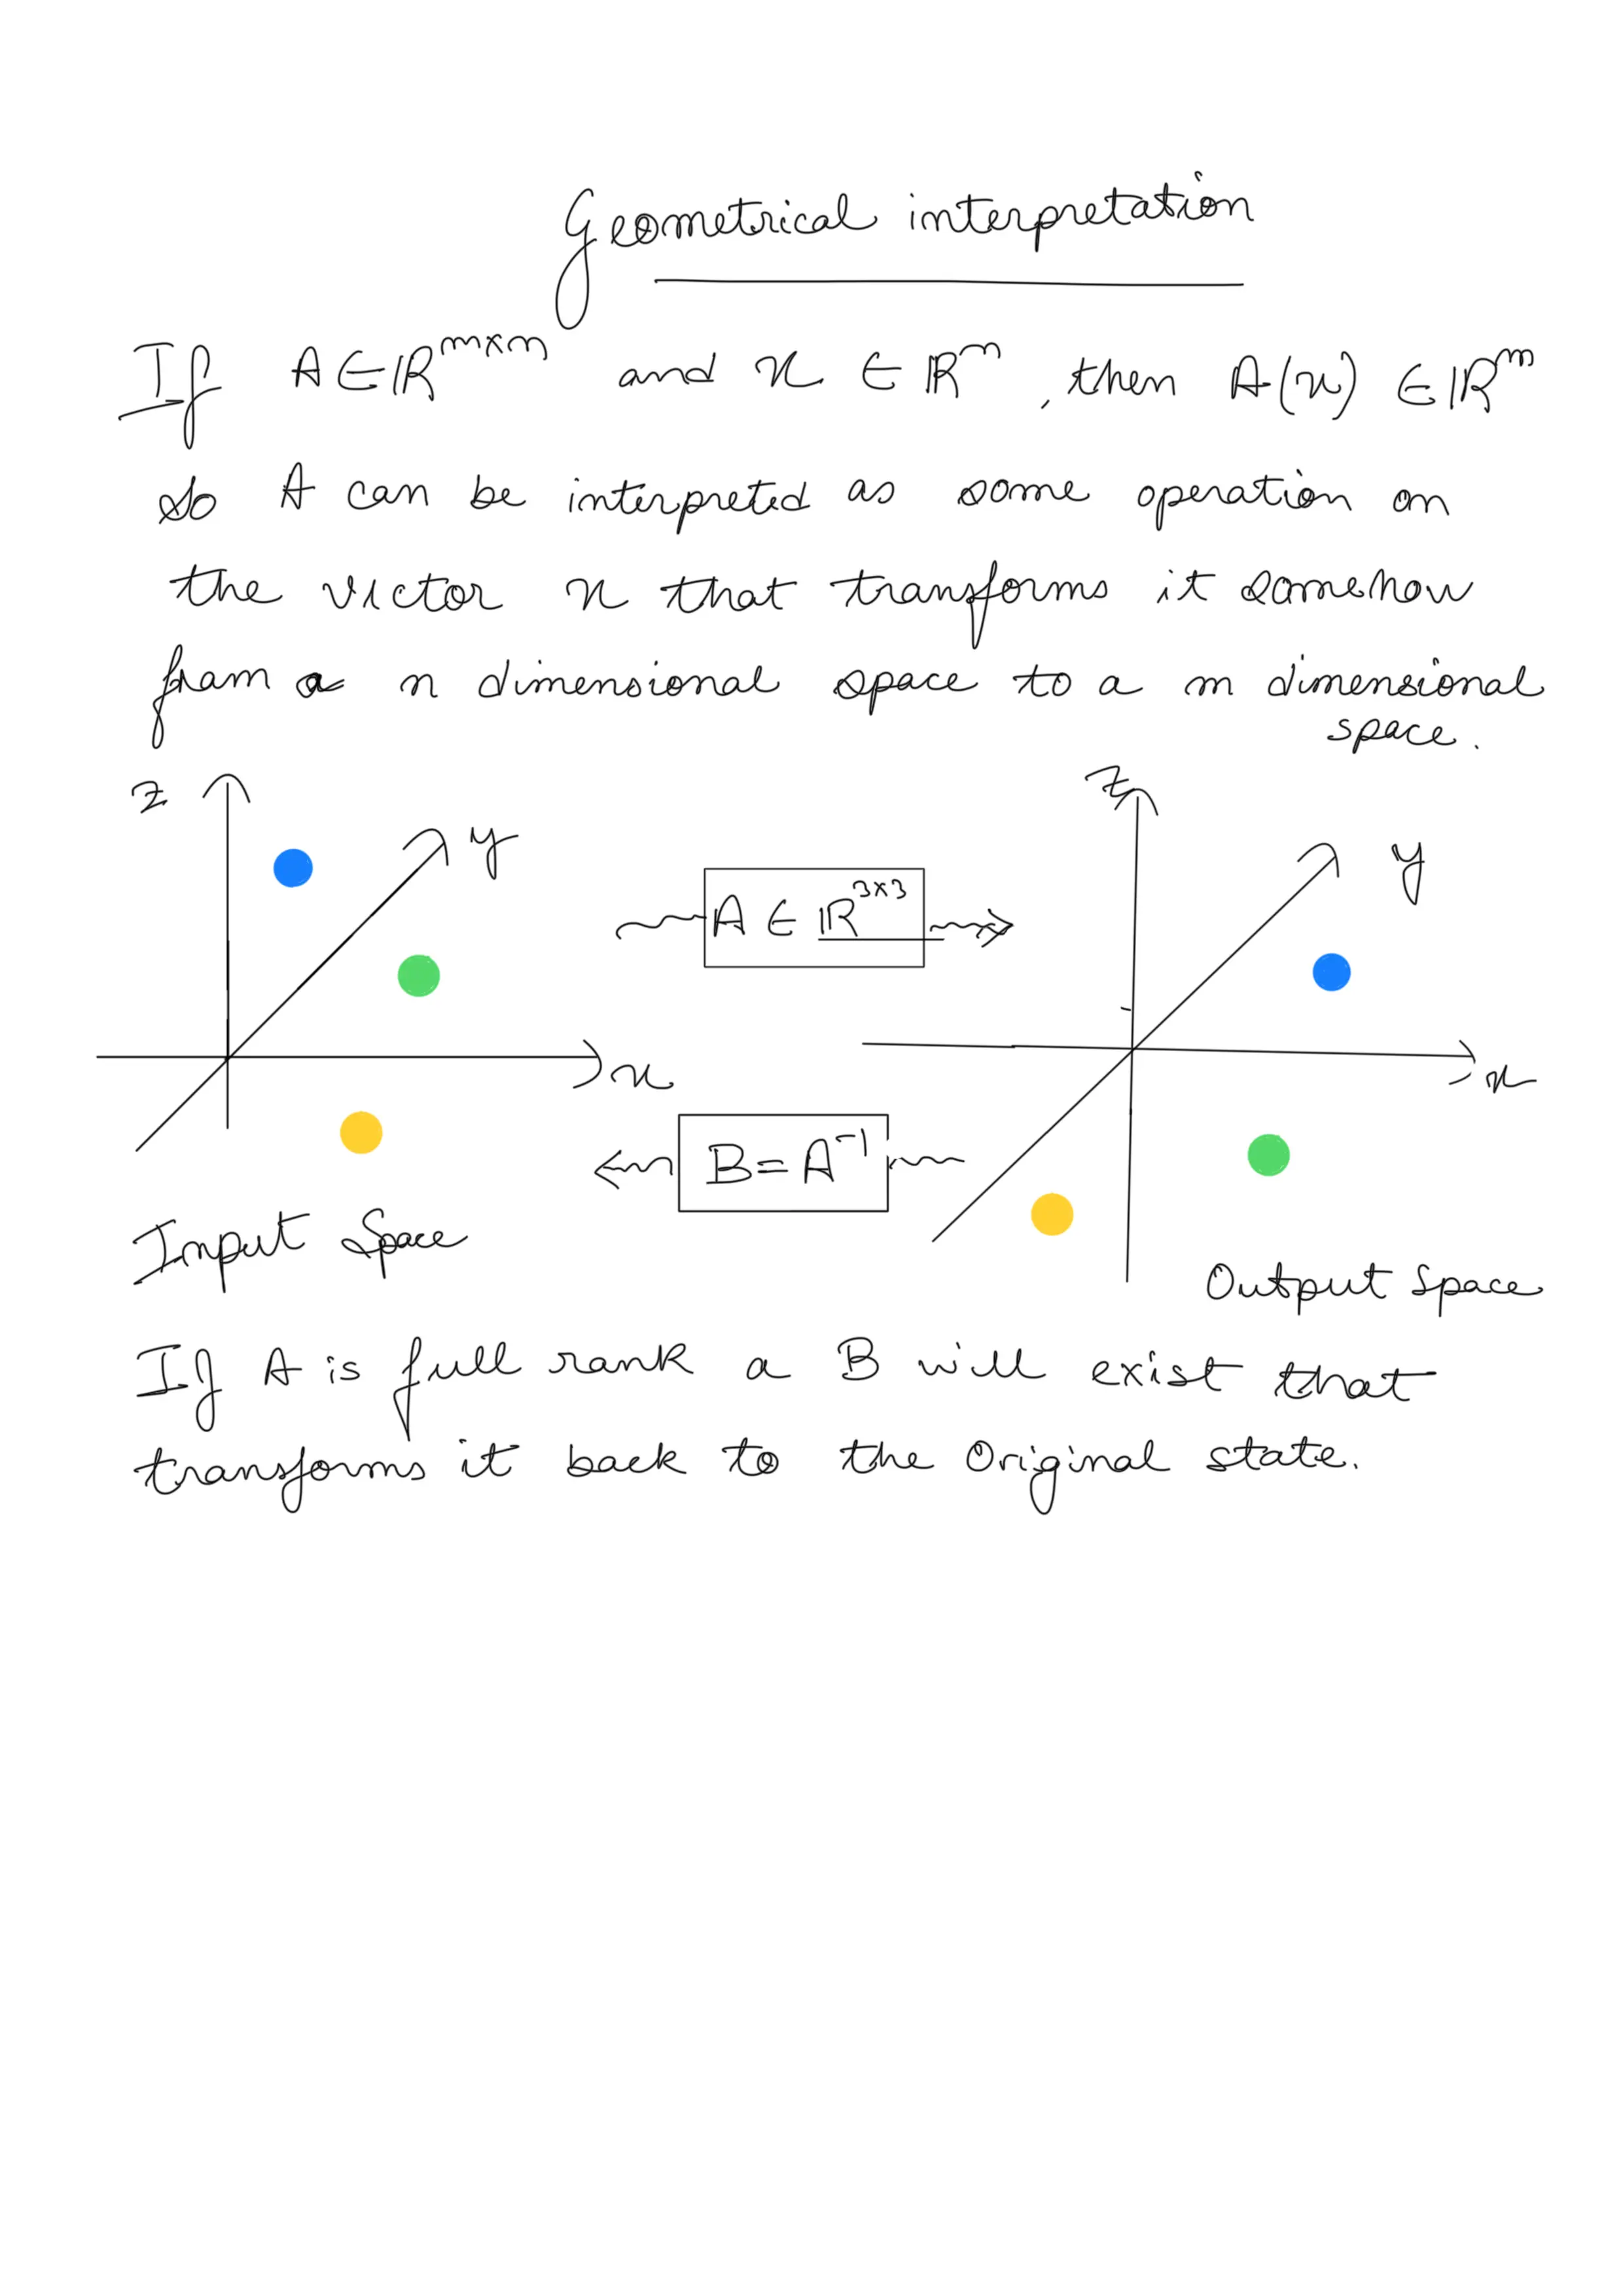 Geometrical interpretation
If A ∈ ℝ^{m×n} and x ∈ ℝ^n, then A(x) ∈ ℝ^m
so A can be interpreted as some operation on
the vector x that transforms it somehow
from a n dimensional space to a m dimensional
space.
z
y
x
A ∈ ℝ^{3×3}
B = A^{-1}
z
y
x
Input Space
Output space
If A is full rank a B will exist that
transforms it back to the Original state.